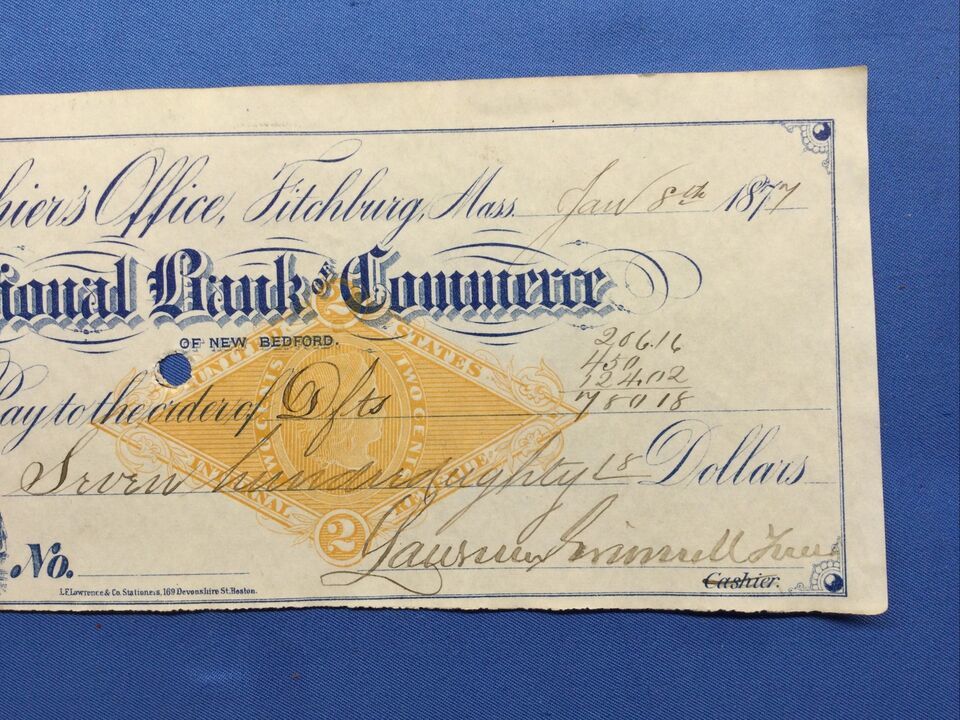 hier's Office, Fitchburg, Mass. Jan 8th 1877
tional Bank of Commerce
OF NEW BEDFORD.
2
UNITED STATES
TWO CENTS
TWO CENTS
INTERNAL REVENUE
2
206.16
450
124.02
780 18
Pay to the order of Dfts
Seven hundred eighty 18 Dollars
No.
Cashier.
L.F. Lawrence & Co. Stationers, 169 Devonshire St. Boston.